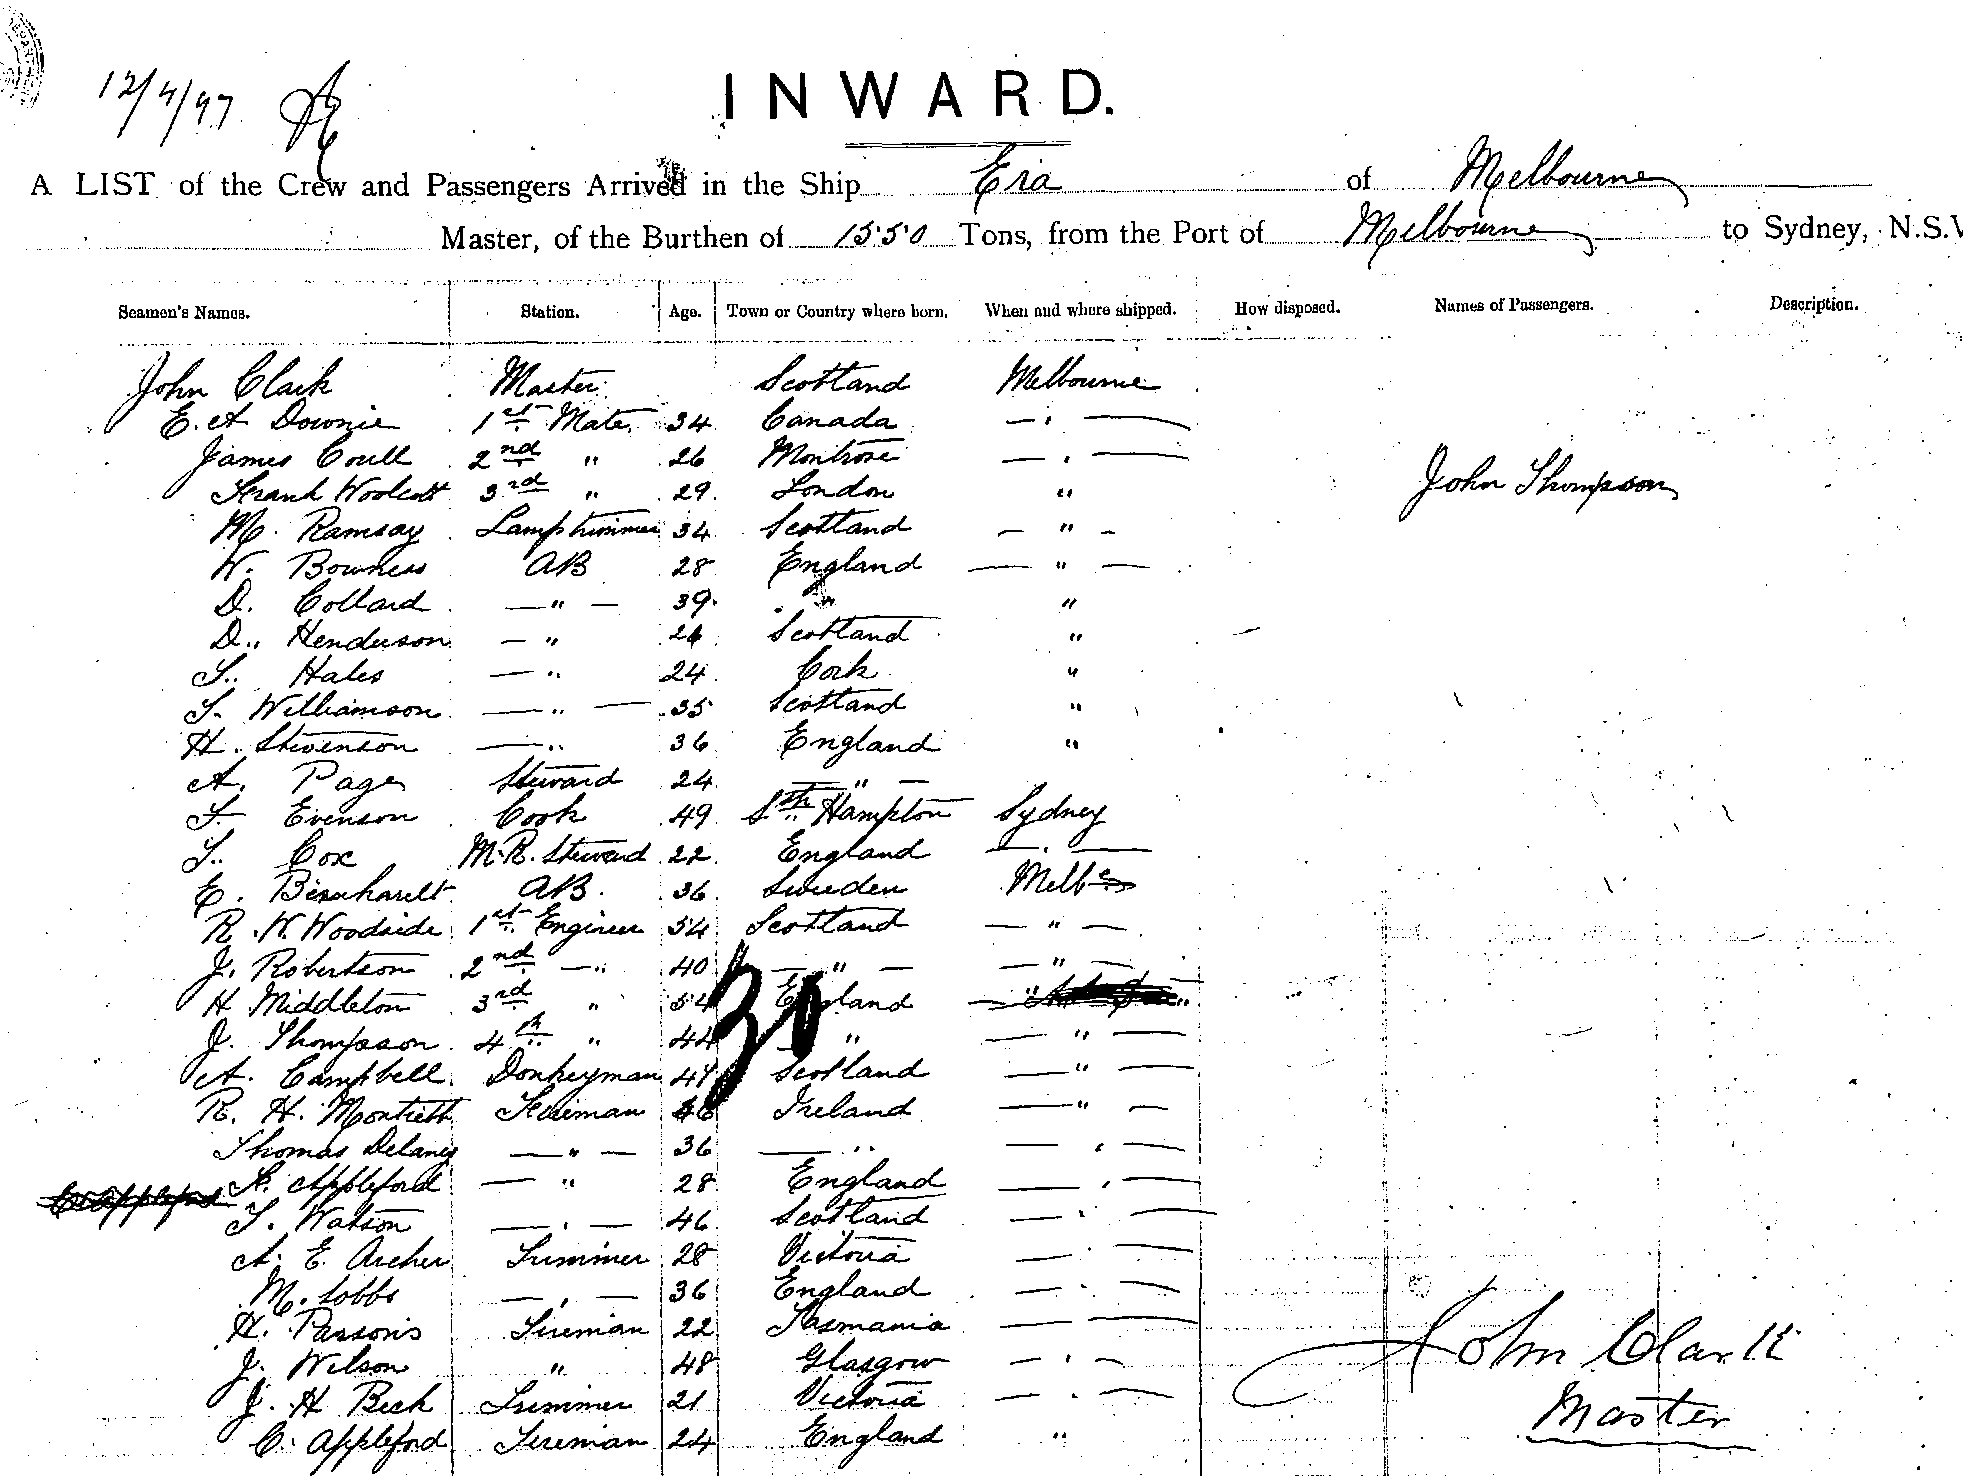 12/4/97
INWARD.
A LIST of the Crew and Passengers Arrived in the Ship Era of Melbourne
Master, of the Burthen of 1550 Tons, from the Port of Melbourne to Sydney, N.S.W
Seamen's Names. Station. Age. Town or Country where born. When and where shipped. How disposed. Names of Passengers. Description.
John Clark Master Scotland Melbourne
E. A Downie 1st Mate 34 Canada — " —
James Coull 2nd " 26 Montrose — " —
John Thompson
Frank Woolcott 3rd " 29 London "
M. Ramsay Lamptrimmer 34 Scotland — " —
W. Bowness AB 28 England — " —
D. Collard — " — 39 " "
D. Henderson — " 26 Scotland "
T. Hales — " 24 Cork "
T. Williamson — " — 35 Scotland "
H. Stevenson — " 36 England "
A. Page Steward 24 — " — 
F. Evenson Cook 49 Sth Hampton Sydney
T. Cox M.R. Steward 22 England — " —
E. Bernhardt AB. 36 Sweden Melbe
R. W. Woodside 1st Engineer 54 Scotland — " —
J. Robertson 2nd — " 40 — " — — " —
H Middleton 3rd " 54 England — " "
J. Thompson 4th " 44 " — " —
A. Campbell Donkeyman 47 Scotland — " —
30
R. H. Montieth Fireman Ireland — " —
Thomas Delaney — " — 36 — " — " —
A. Appleford — " 28 England — " —
T. Watson — " — 46 Scotland — " —
A. E. Archer Trimmer 28 Victoria — " —
M. Lobbs — " — 36 England — " —
H. Parsons Fireman 22 Tasmania — " —
J. Wilson " 48 Glasgow — " —
John Clark
J. H Beck Trimmer 21 Victoria — " —
Master
C. Appleford Fireman 24 England "